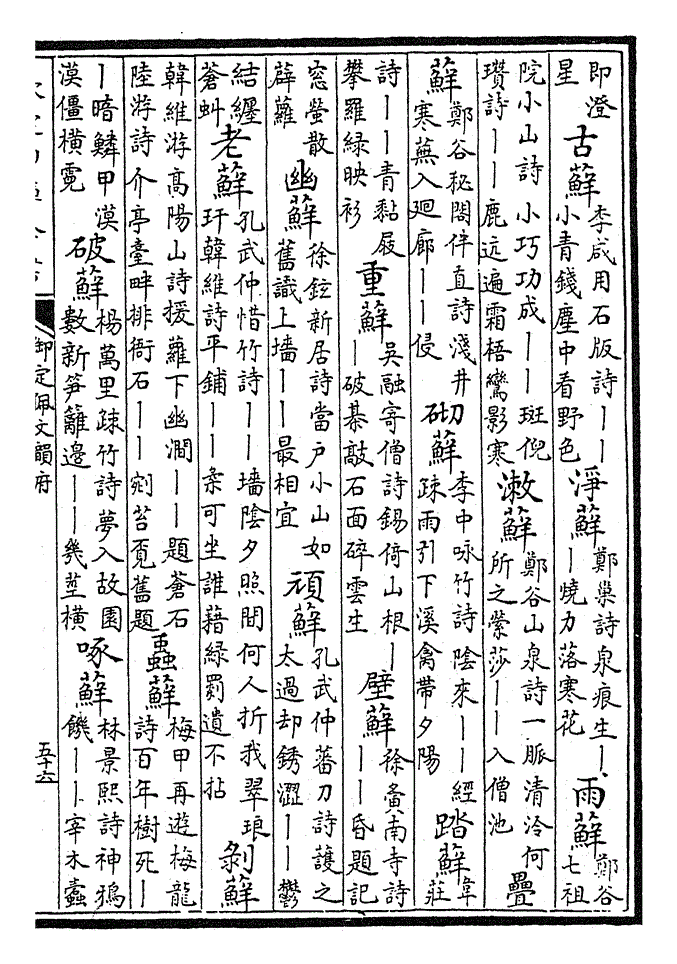 即澄星　古蘚　李咸用石版詩丨丨小青錢塵中看野色　淨蘚　鄭巢詩泉痕生丨丨燒力落寒花　雨蘚　鄭谷七祖
院小山詩小巧功成丨丨斑倪瓚詩丨丨鹿迒遍霜梧鸞影寒　漱蘚　鄭谷山泉詩一脈清泠何所之縈莎丨丨入僧池　疊
蘚　鄭谷秘閣伴直詩淺井寒蕪入廻廊丨丨侵　砌蘚　李中咏竹詩陰來丨丨經疎雨引下溪禽帶夕陽　踏蘚　韋莊
詩丨丨青黏屐攀羅綠映衫　重蘚　吳融寄僧詩錫倚山根丨丨破棊敲石面碎雲生　壁蘚　徐夤南寺詩丨丨昏題記
窓螢散辟蘿　幽蘚　徐鉉新居詩當户小山如舊識上墻丨丨最相宜　頑蘚　孔武仲蕃刀詩護之太過却銹澀丨丨鬱
結纏蒼虯　老蘚　孔武仲惜竹詩丨丨墻陰夕照間何人折我翠琅玕韓維詩平鋪丨丨柔可坐誰藉綠罽遺不拈　剝蘚
韓維游高陽山詩援蘿下幽澗丨丨題蒼石陸游詩介亭臺畔排衙石丨丨剜苔覓舊題　蟲蘚　梅甲再遊梅龍詩百年樹死丨
丨暗鱗甲漠漠僵橫霓　破蘚　楊萬里疎竹詩夢入故園數新筍籬邉丨丨幾莖橫　啄蘚　林景熙詩神鴉饑丨丨宰木蠹
御定佩文韻府
五十六